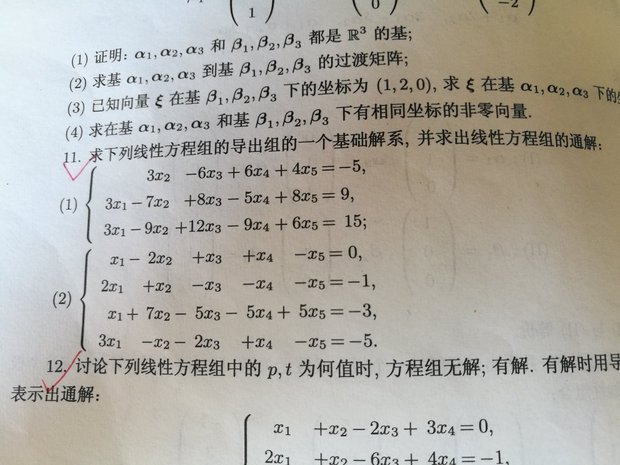 1
0
-2
(1) 证明: α₁, α₂, α₃ 和 β₁, β₂, β₃ 都是 ℝ³ 的基;
(2) 求基 α₁, α₂, α₃ 到基 β₁, β₂, β₃ 的过渡矩阵;
(3) 已知向量 ξ 在基 β₁, β₂, β₃ 下的坐标为 (1, 2, 0), 求 ξ 在基 α₁, α₂, α₃ 下的
(4) 求在基 α₁, α₂, α₃ 和基 β₁, β₂, β₃ 下有相同坐标的非零向量.
11. 求下列线性方程组的导出组的一个基础解系, 并求出线性方程组的通解:
3x₂ −6x₃ + 6x₄ + 4x₅ = −5,
(1) 3x₁ − 7x₂ +8x₃ − 5x₄ + 8x₅ = 9,
3x₁ − 9x₂ +12x₃ − 9x₄ + 6x₅ = 15;
x₁ − 2x₂ +x₃ +x₄ −x₅ = 0,
2x₁ +x₂ −x₃ −x₄ −x₅ = −1,
(2)
x₁ + 7x₂ − 5x₃ − 5x₄ + 5x₅ = −3,
3x₁ −x₂ − 2x₃ +x₄ −x₅ = −5.
12. 讨论下列线性方程组中的 p, t 为何值时, 方程组无解; 有解. 有解时用导
表示出通解:
x₁ +x₂ − 2x₃ + 3x₄ = 0,
2x₁ +x₂ − 6x₃ + 4x₄ = −1,